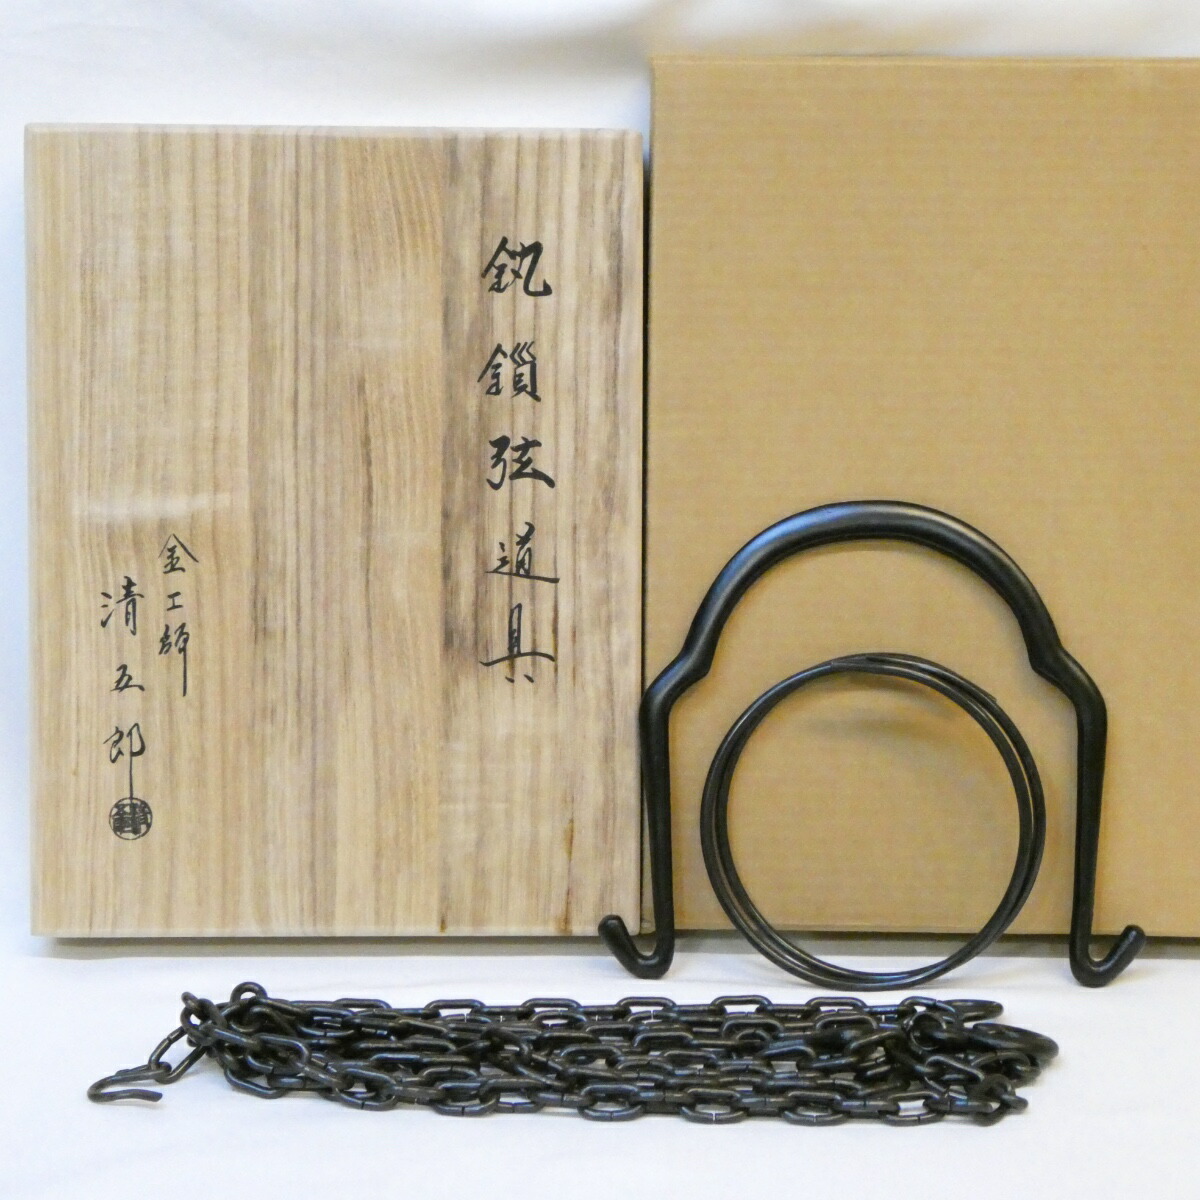 釻鎖弦道具
金工師
清五郎